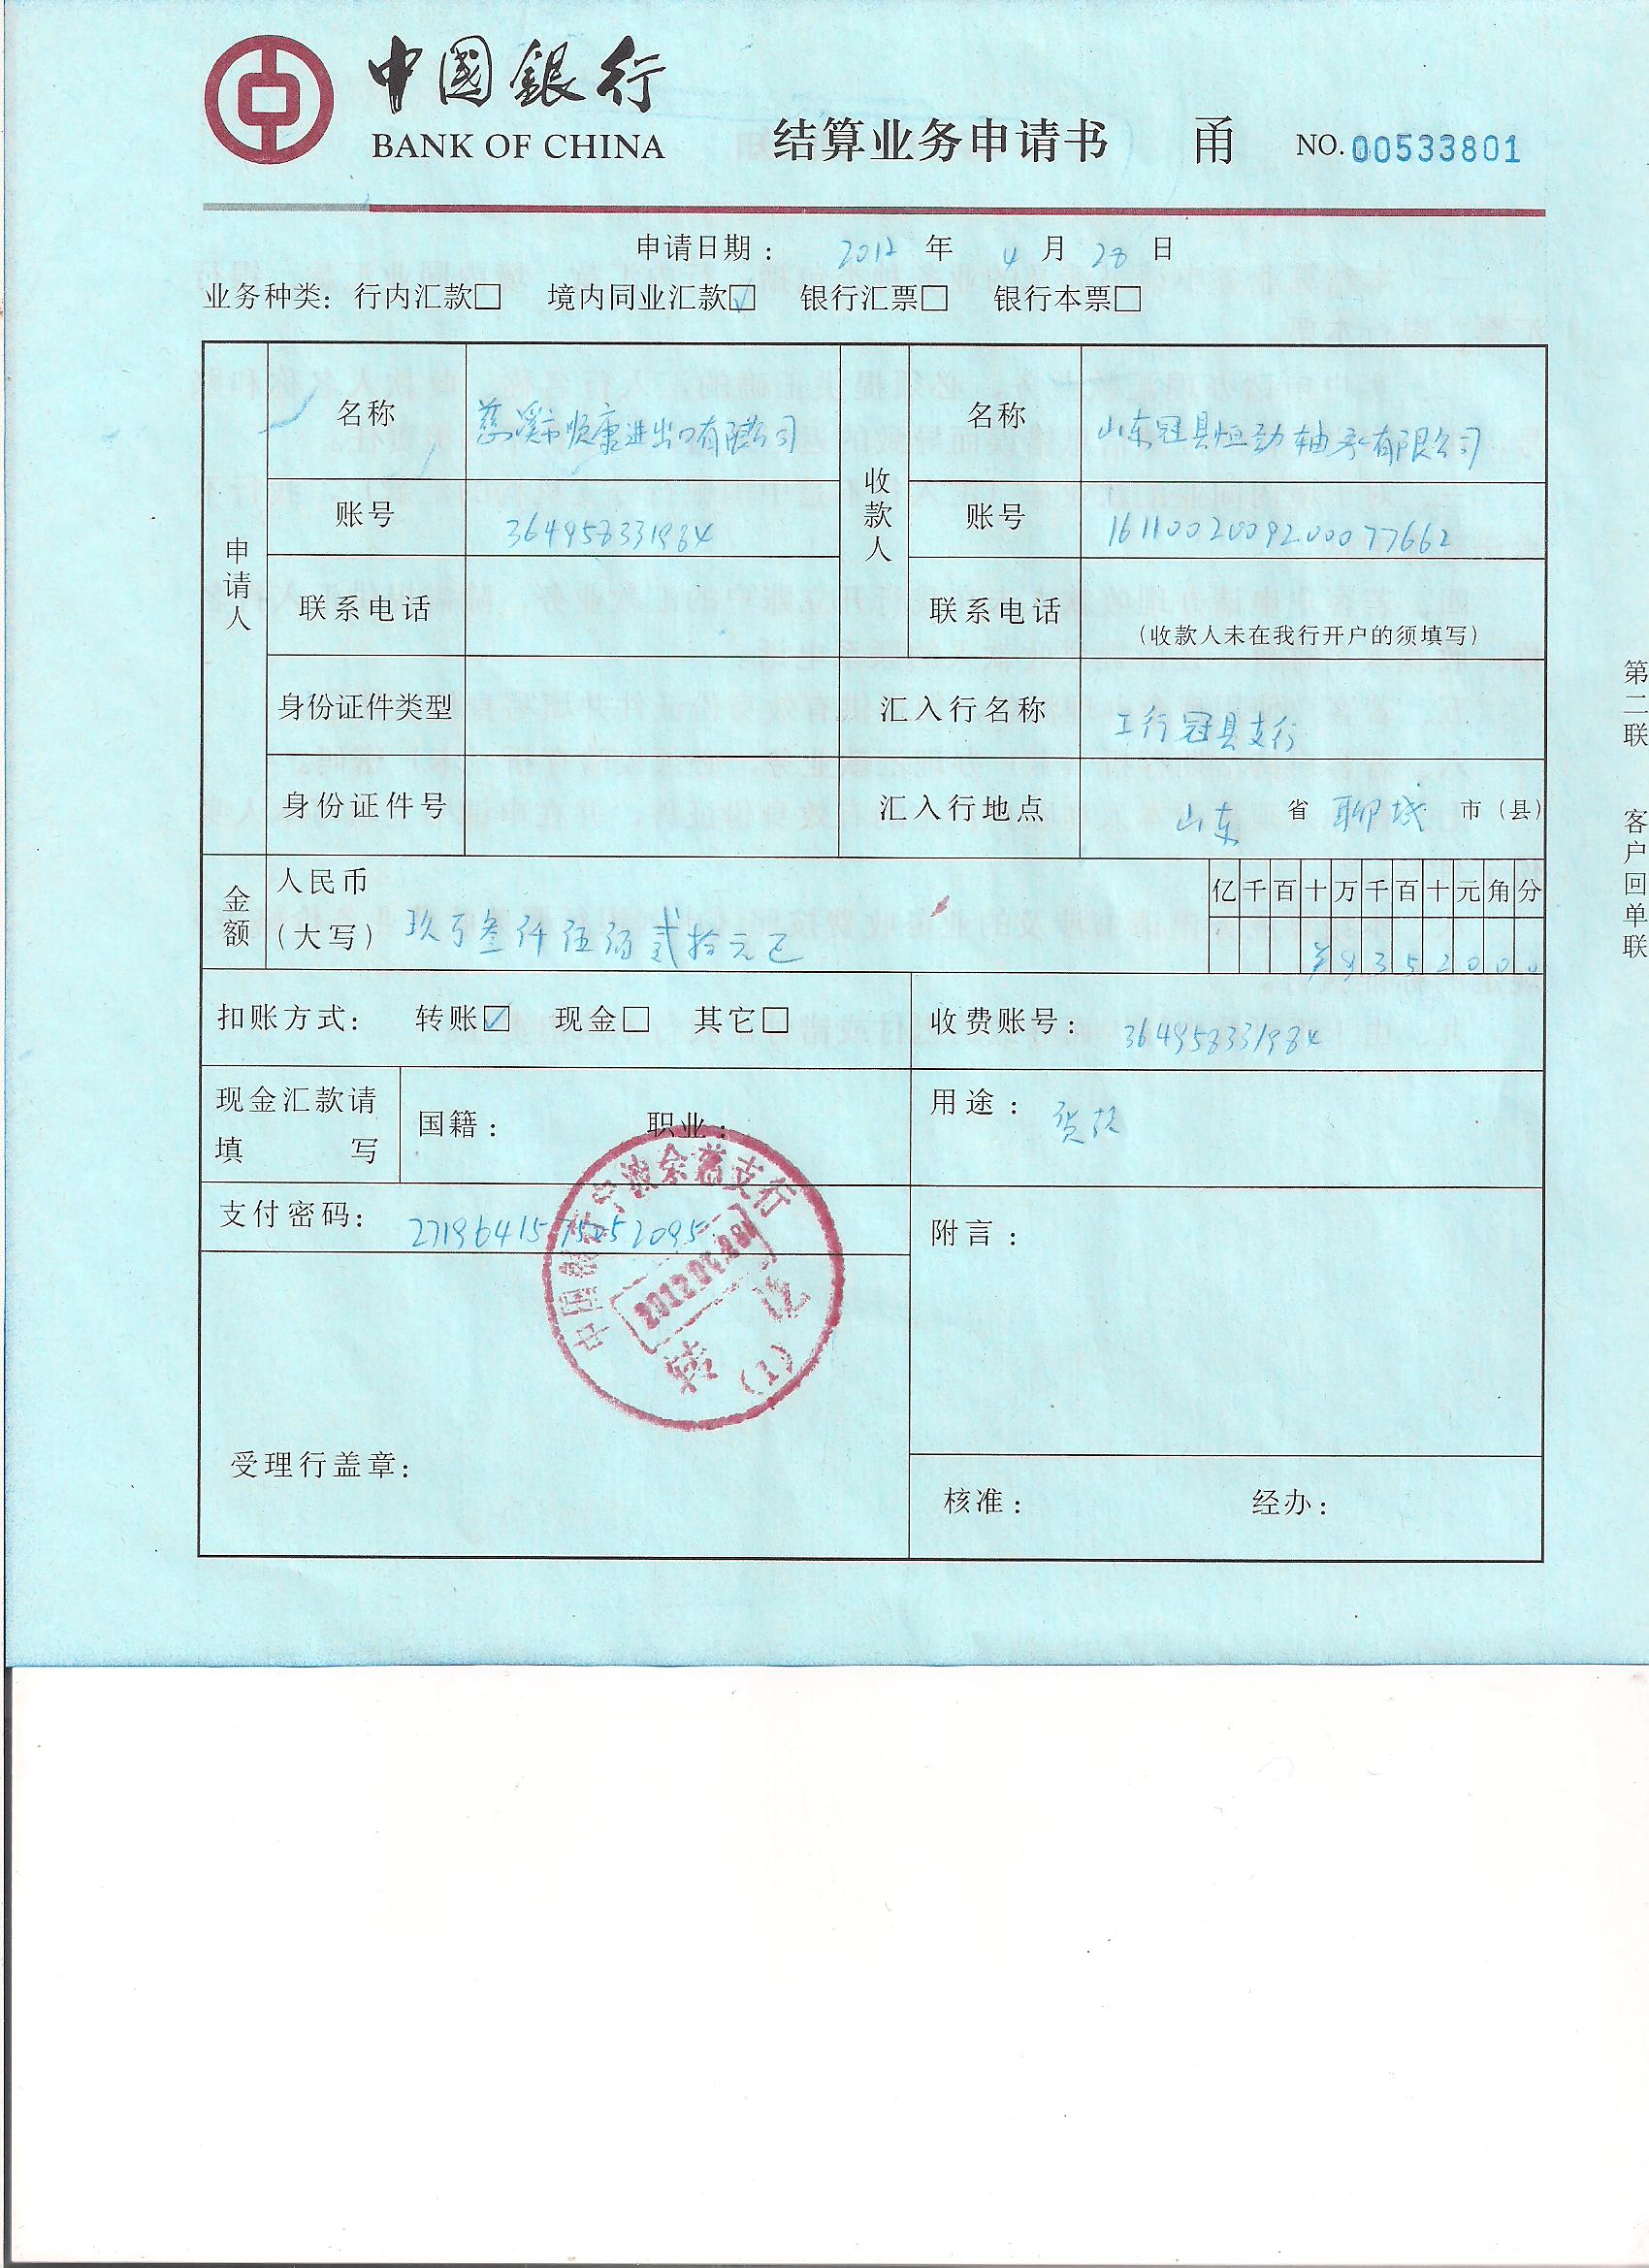 中國銀行
BANK OF CHINA
结算业务申请书 甬 NO. 00533801
申请日期: 2012 年 4 月 28 日
业务种类: 行内汇款□ 境内同业汇款☑ 银行汇票□ 银行本票□
申请人
名称 慈溪市顺康进出口有限公司
收款人
名称 山东冠县恒劲轴承有限公司
账号 364958331984
账号 1611002009200077662
联系电话
联系电话 (收款人未在我行开户的须填写)
身份证件类型
汇入行名称 工行冠县支行
身份证件号
汇入行地点 山东 省 聊城 市(县)
金额
人民币
(大写) 玖万叁仟伍佰贰拾元正
亿千百十万千百十元角分
¥9352000
扣账方式: 转账☑ 现金□ 其它□
收费账号: 364958331984
现金汇款请
填 写
国籍: 职业:
用途: 货款
支付密码: 2719641575052095
附言:
中国银行宁波余慈支行
2012.04.28
转讫
(1)
受理行盖章:
核准: 经办:
第二联 客户回单联